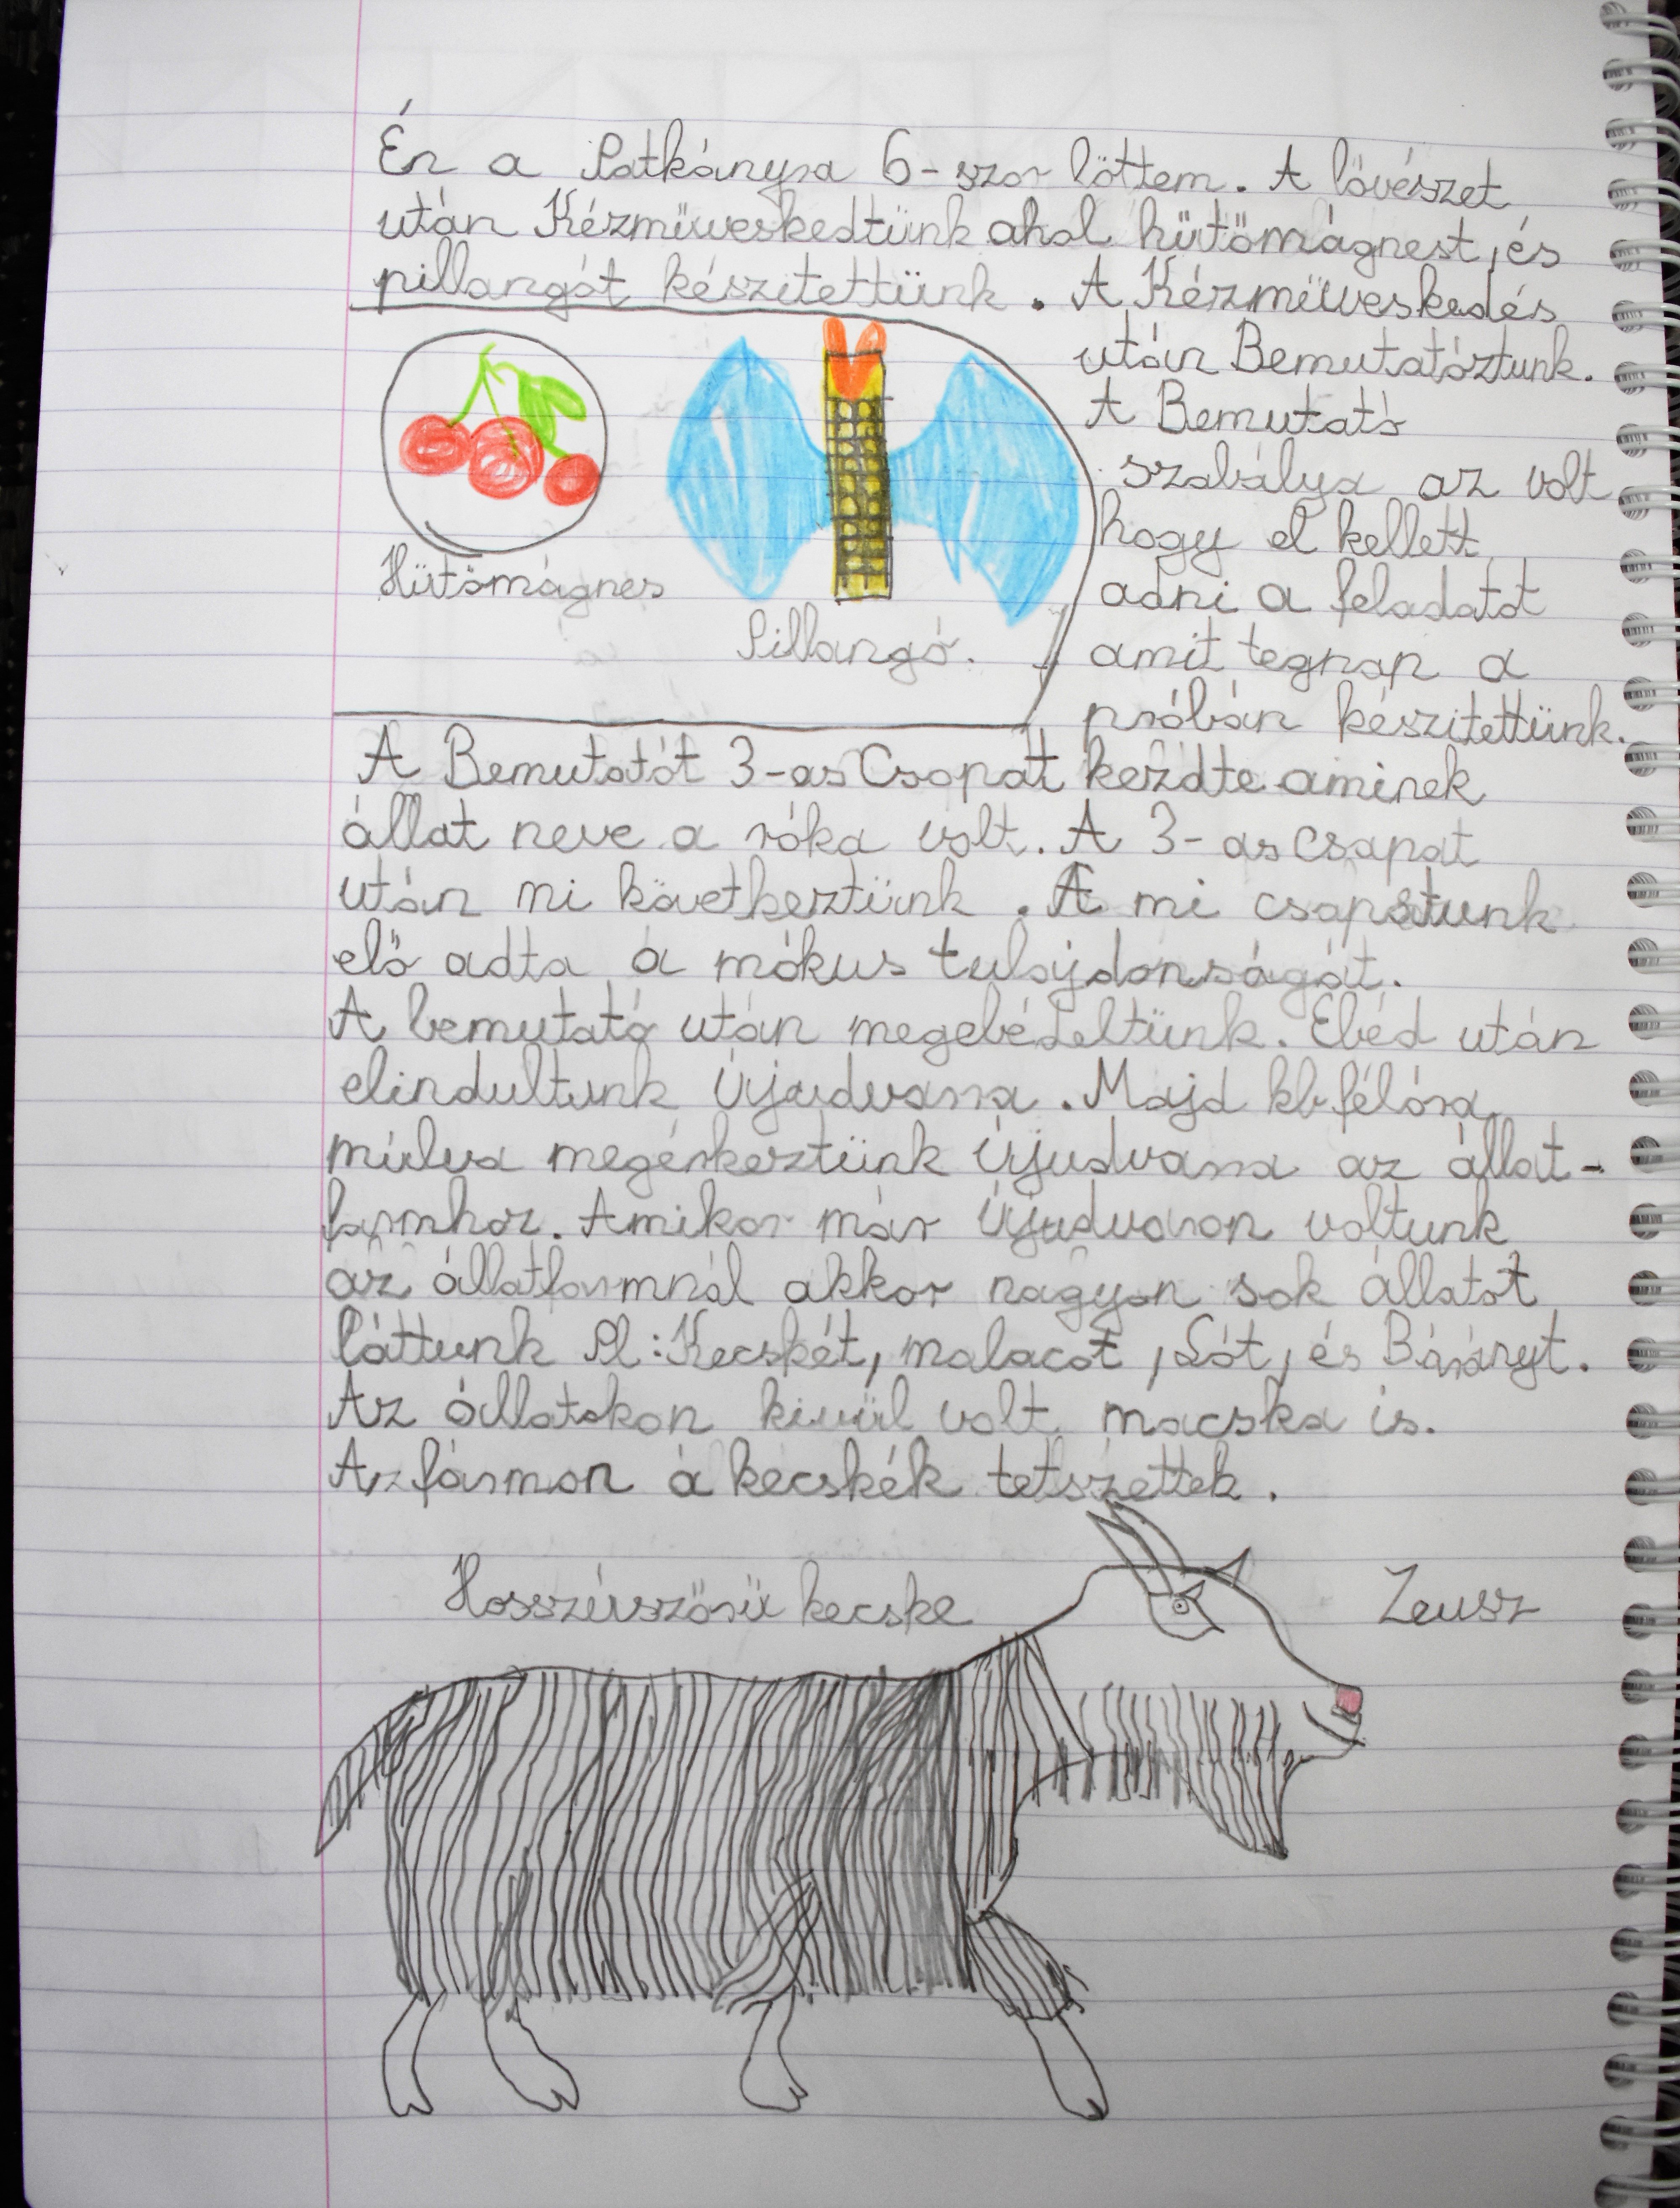 Én a Patkányra 6-szor löttem. A lövészet
után Kézmüveskedtünk ahol hütömágnest, és
pillangót készitettünk. A Kézmüveskedés
után Bemutatóztunk.
A Bemutató
szabálya az volt
hogy el kellett
adni a feladatot
amit tegnap a
próbán készitettünk.
Hütömágnes
Pillangó.
A Bemutatót 3-as Csapat kezdte aminek
állat neve a róka volt. A 3-as csapat
után mi következtünk. A mi csapatunk
elő adta a mókus tulajdonságát.
A bemutató után megebédeltünk. Ebéd után
elindultunk Újudvarra. Majd kb félóra
múlva megérkeztünk Újudvarra az állat-
farmhoz. Amikor már Újudvaron voltunk
az állatfarmnál akkor nagyon sok állatot
láttunk Pl: Kecskét, malacot, Lót, és Bárányt.
Az állatokon kivül volt macska is.
Az fármon a kecskék tetszettek.
Hosszúszörü kecske
Zeusz